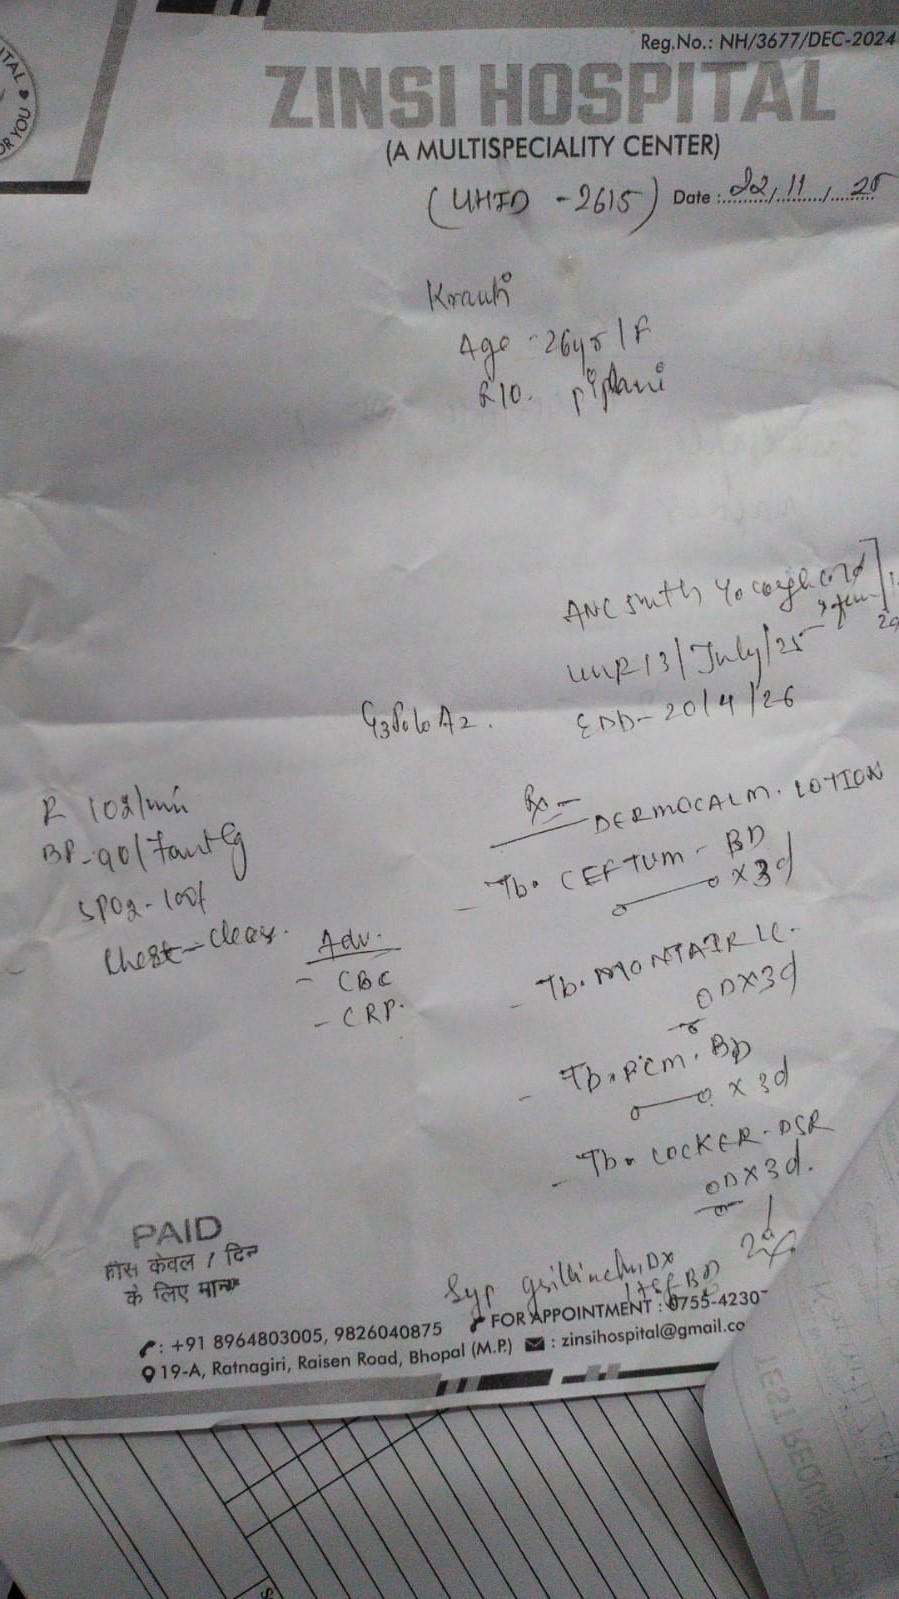 ITAL
OR YOU
Reg.No.: NH/3677/DEC-2024
ZINSI HOSPITAL
(A MULTISPECIALITY CENTER)
(UHID - 2615) Date : 22/11/25
Age - 26yr/F
R/O. piplani
ANC 5mth
13/July/25
G3P0L0A2.
EDD- 20/4/26
102/min
BP-90/
SPO2-100%
Chest-clear.
Adv.
- CBC
- CRP.
Rx -
DERMOCALM. LOTION
- Tb. CEFTUM - BD
x 3d
- Tb. MONTAIR LC.
OD x 3d
- Tb. PCM. BD
x 3d
- Tb. LOCKER-DSR
OD x 3d.
Syp
BD
PAID
फीस केवल 1 दिन
के लिए मान्य
FOR APPOINTMENT : 0755-4230
: +91 8964803005, 9826040875
: zinsihospital@gmail.co
19-A, Ratnagiri, Raisen Road, Bhopal (M.P.)